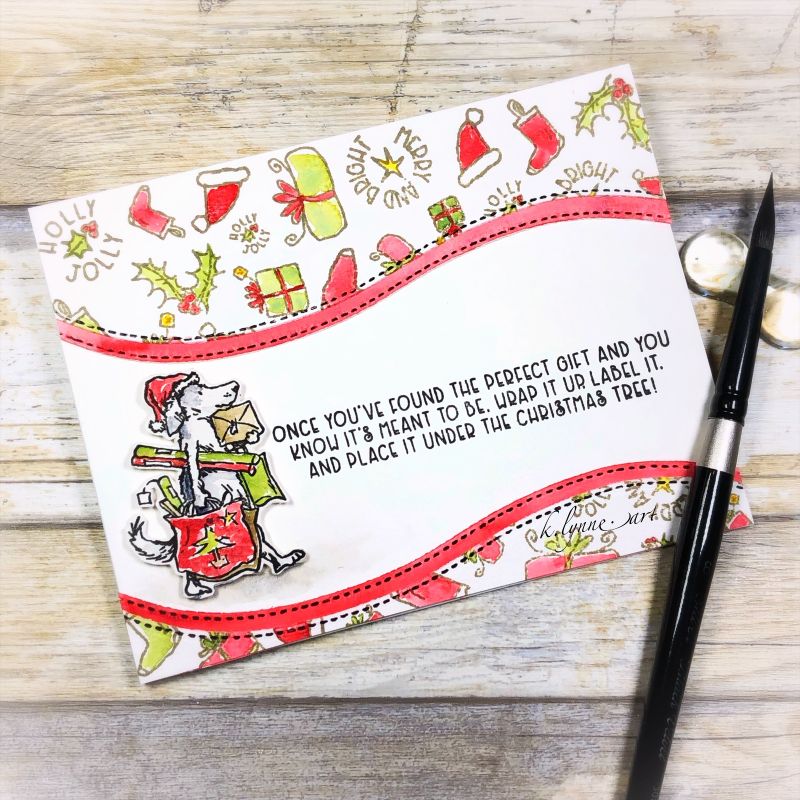 HOLLY
JOLLY
HOLLY
JOLLY
MERRY AND BRIGHT
JOLLY
BRIGHT
ONCE YOU'VE FOUND THE PERFECT GIFT AND YOU
KNOW IT'S MEANT TO BE. WRAP IT UP, LABEL IT,
AND PLACE IT UNDER THE CHRISTMAS TREE!
k.lynne.art